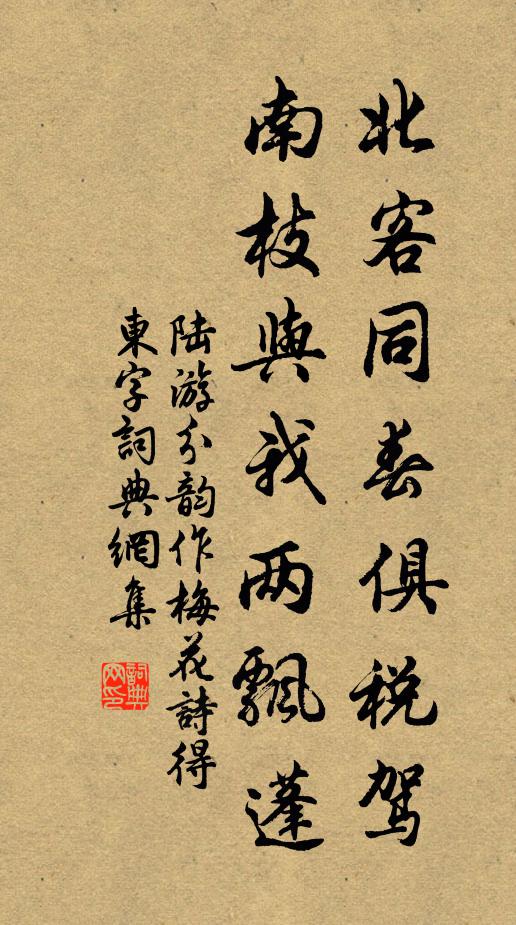 北客同春俱税駕
南枝與我两飄蓬
陆游分韵作梅花詩得
東字詞典網集
詞典网印